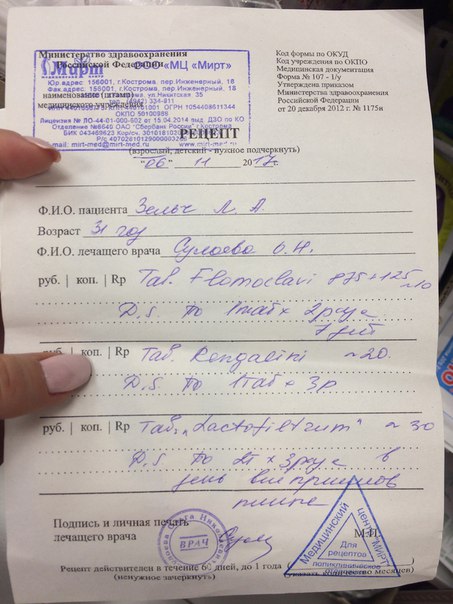 Министерство здравоохранения
Российской Федерации
Мирт ООО «МЦ «Мирт»
Юр адрес 156001, г.Кострома, пер.Инженерный, 18
Факт адрес 156001, г.Кострома, пер.Инженерный, 18
наименование (штамп)
медицинского учреждения
тел. (4942) 334-811
ОГРН 1054408611344
ОКПО 50100988
Лицензия № ЛО-44-01-000-602 от 15.04.2014 выд. ДЗО КО
Отделение №8640 ОАО "Сбербанк России" г.Кострома
mirt-med@mirt-med.ru
Код формы по ОКУД
Код учреждения по ОКПО
Медицинская документация
Форма № 107 - 1/у
Утверждена приказом
Министерства здравоохранения
Российской Федерации
от 20 декабря 2012 г. № 1175н
РЕЦЕПТ
(взрослый, детский - нужное подчеркнуть)
"06" 11 2017г.
Ф.И.О. пациента Зельч Л. А.
Возраст 31 год
Ф.И.О. лечащего врача О.Н.
руб. | коп. | Rp Tab. Flemoclavi 875+125 №10
D.S. по 1таб х 2раза
7 дней
руб. | коп. | Rp Таб. Rengalini №20.
D.S по 1таб х 3р
руб. | коп. | Rp Таб. „Lactofiltrum" №30
D.S. по 2т х 3раза в
день вне приемов
пищи
Подпись и личная печать
лечащего врача
М.П.
ВРАЧ
Медицинский центр "МИРТ"
Для рецептов
поликлиническое
Рецепт действителен в течение 60 дней, до 1 года (
(ненужное зачеркнуть) (указать количество месяцев)